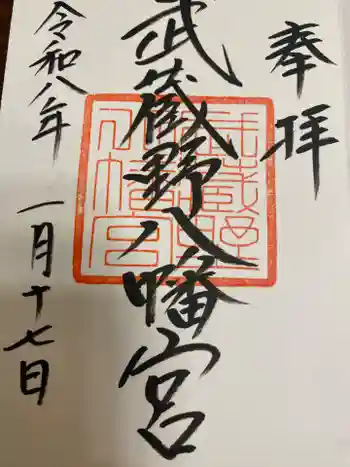 奉拝
武蔵野八幡宮
武蔵野
八幡宮
令和八年
一月十七日